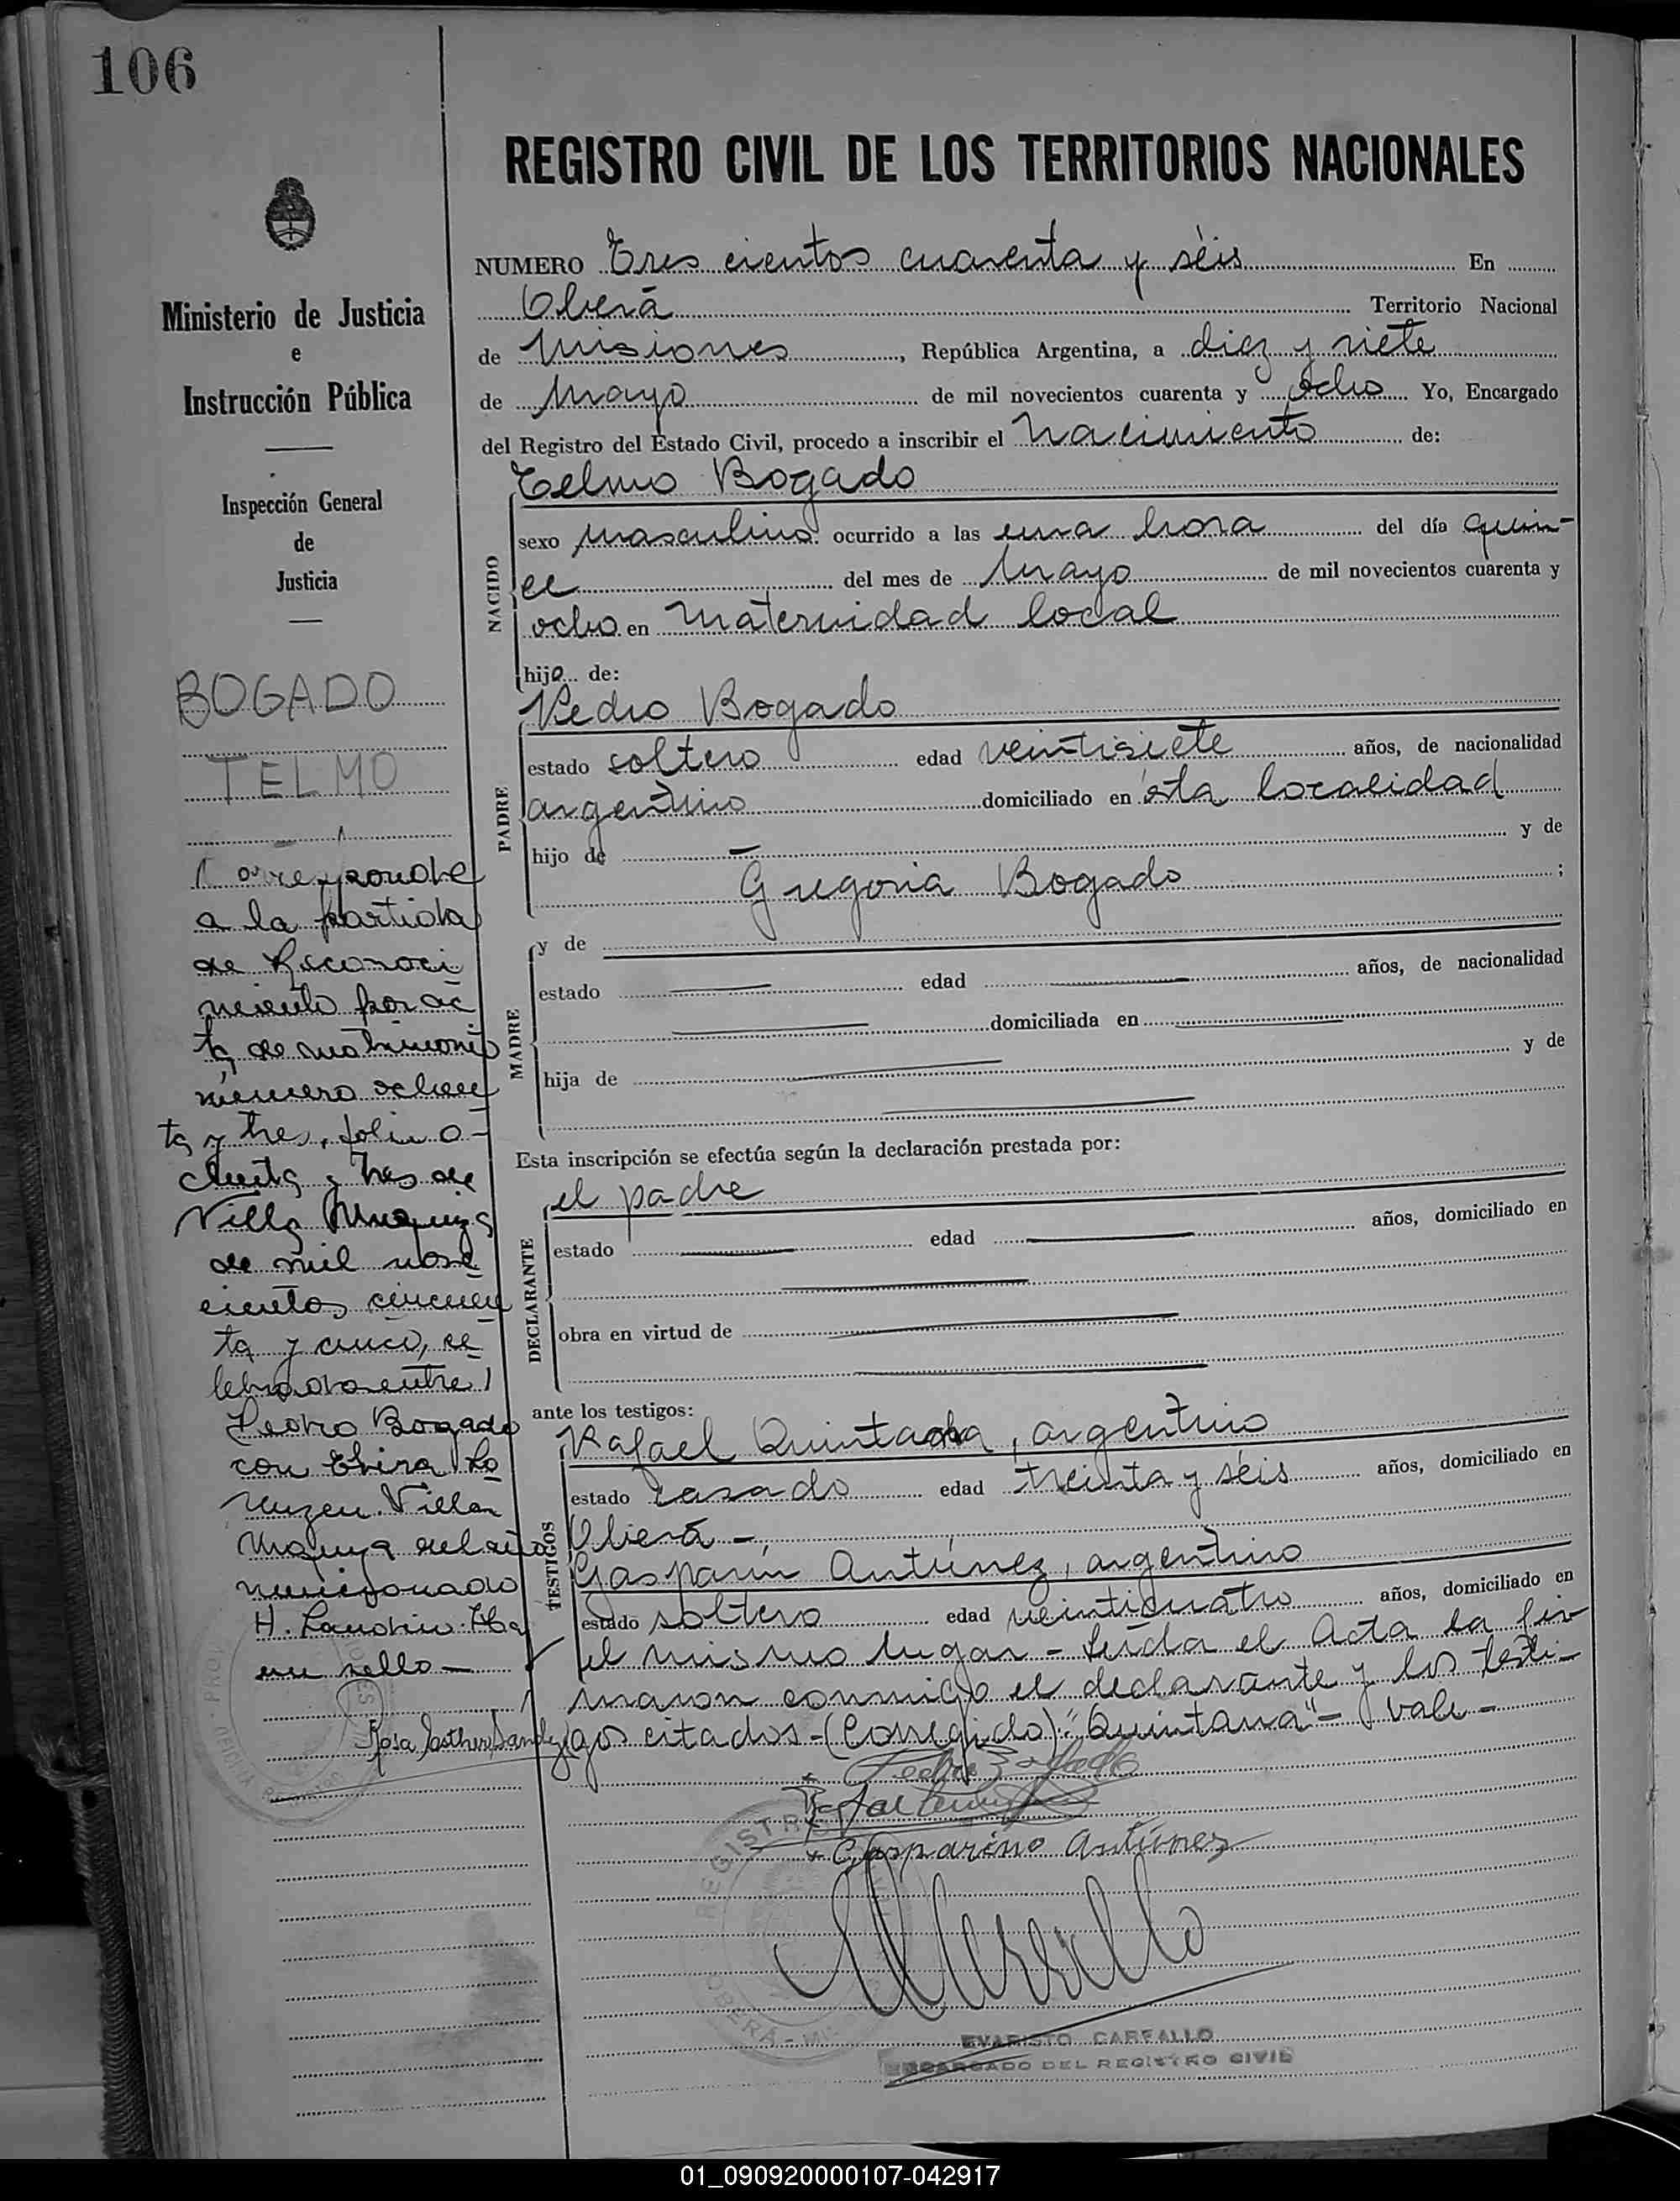 106
REGISTRO CIVIL DE LOS TERRITORIOS NACIONALES
Ministerio de Justicia
e
Instrucción Pública
Inspección General
de
Justicia
BOGADO
TELMO
Corresponde
a la partida
de Reconoci
miento por ac
ta de matrimonio
número ochen
ta y tres, folio o-
chenta y tres de
Villa
de mil nove
cientos cincuen
ta y cinco, ce
lebrado entre
Pedro Bogado
con
Villa
mencionado
H.
un sello -
NUMERO Tres cientos cuarenta y séis En
Oberá Territorio Nacional
de Misiones, República Argentina, a diez y siete
de Mayo de mil novecientos cuarenta y ocho Yo, Encargado
del Registro del Estado Civil, procedo a inscribir el Nacimiento de:
Telmo Bogado
NACIDO
sexo masculino ocurrido a las una hora del día quin-
ce del mes de Mayo de mil novecientos cuarenta y
ocho en Maternidad local
hijo de:
Pedro Bogado
PADRE
estado soltero edad veintisiete años, de nacionalidad
argentino domiciliado en ésta localidad
hijo de — y de
Gregoria Bogado ;
MADRE
y de
estado edad años, de nacionalidad
domiciliada en
hija de y de
Esta inscripción se efectúa según la declaración prestada por:
el padre
DECLARANTE
estado edad años, domiciliado en
obra en virtud de
ante los testigos:
TESTIGOS
Rafael Quintana, argentino
estado casado edad treinta y séis años, domiciliado en
Oberá -
Gasparin Antúnez, argentino
estado soltero edad veinticuatro años, domiciliado en
el mismo lugar - Leída el Acta la fir
maron conmigo el declarante y los testi-
gos citados - (Corregido): "Quintana" - Vale -
Pedro Bogado
Gasparino Antúnez
EVARISTO CARFALLO
ENCARGADO DEL REGISTRO CIVIL
01_090920000107-042917